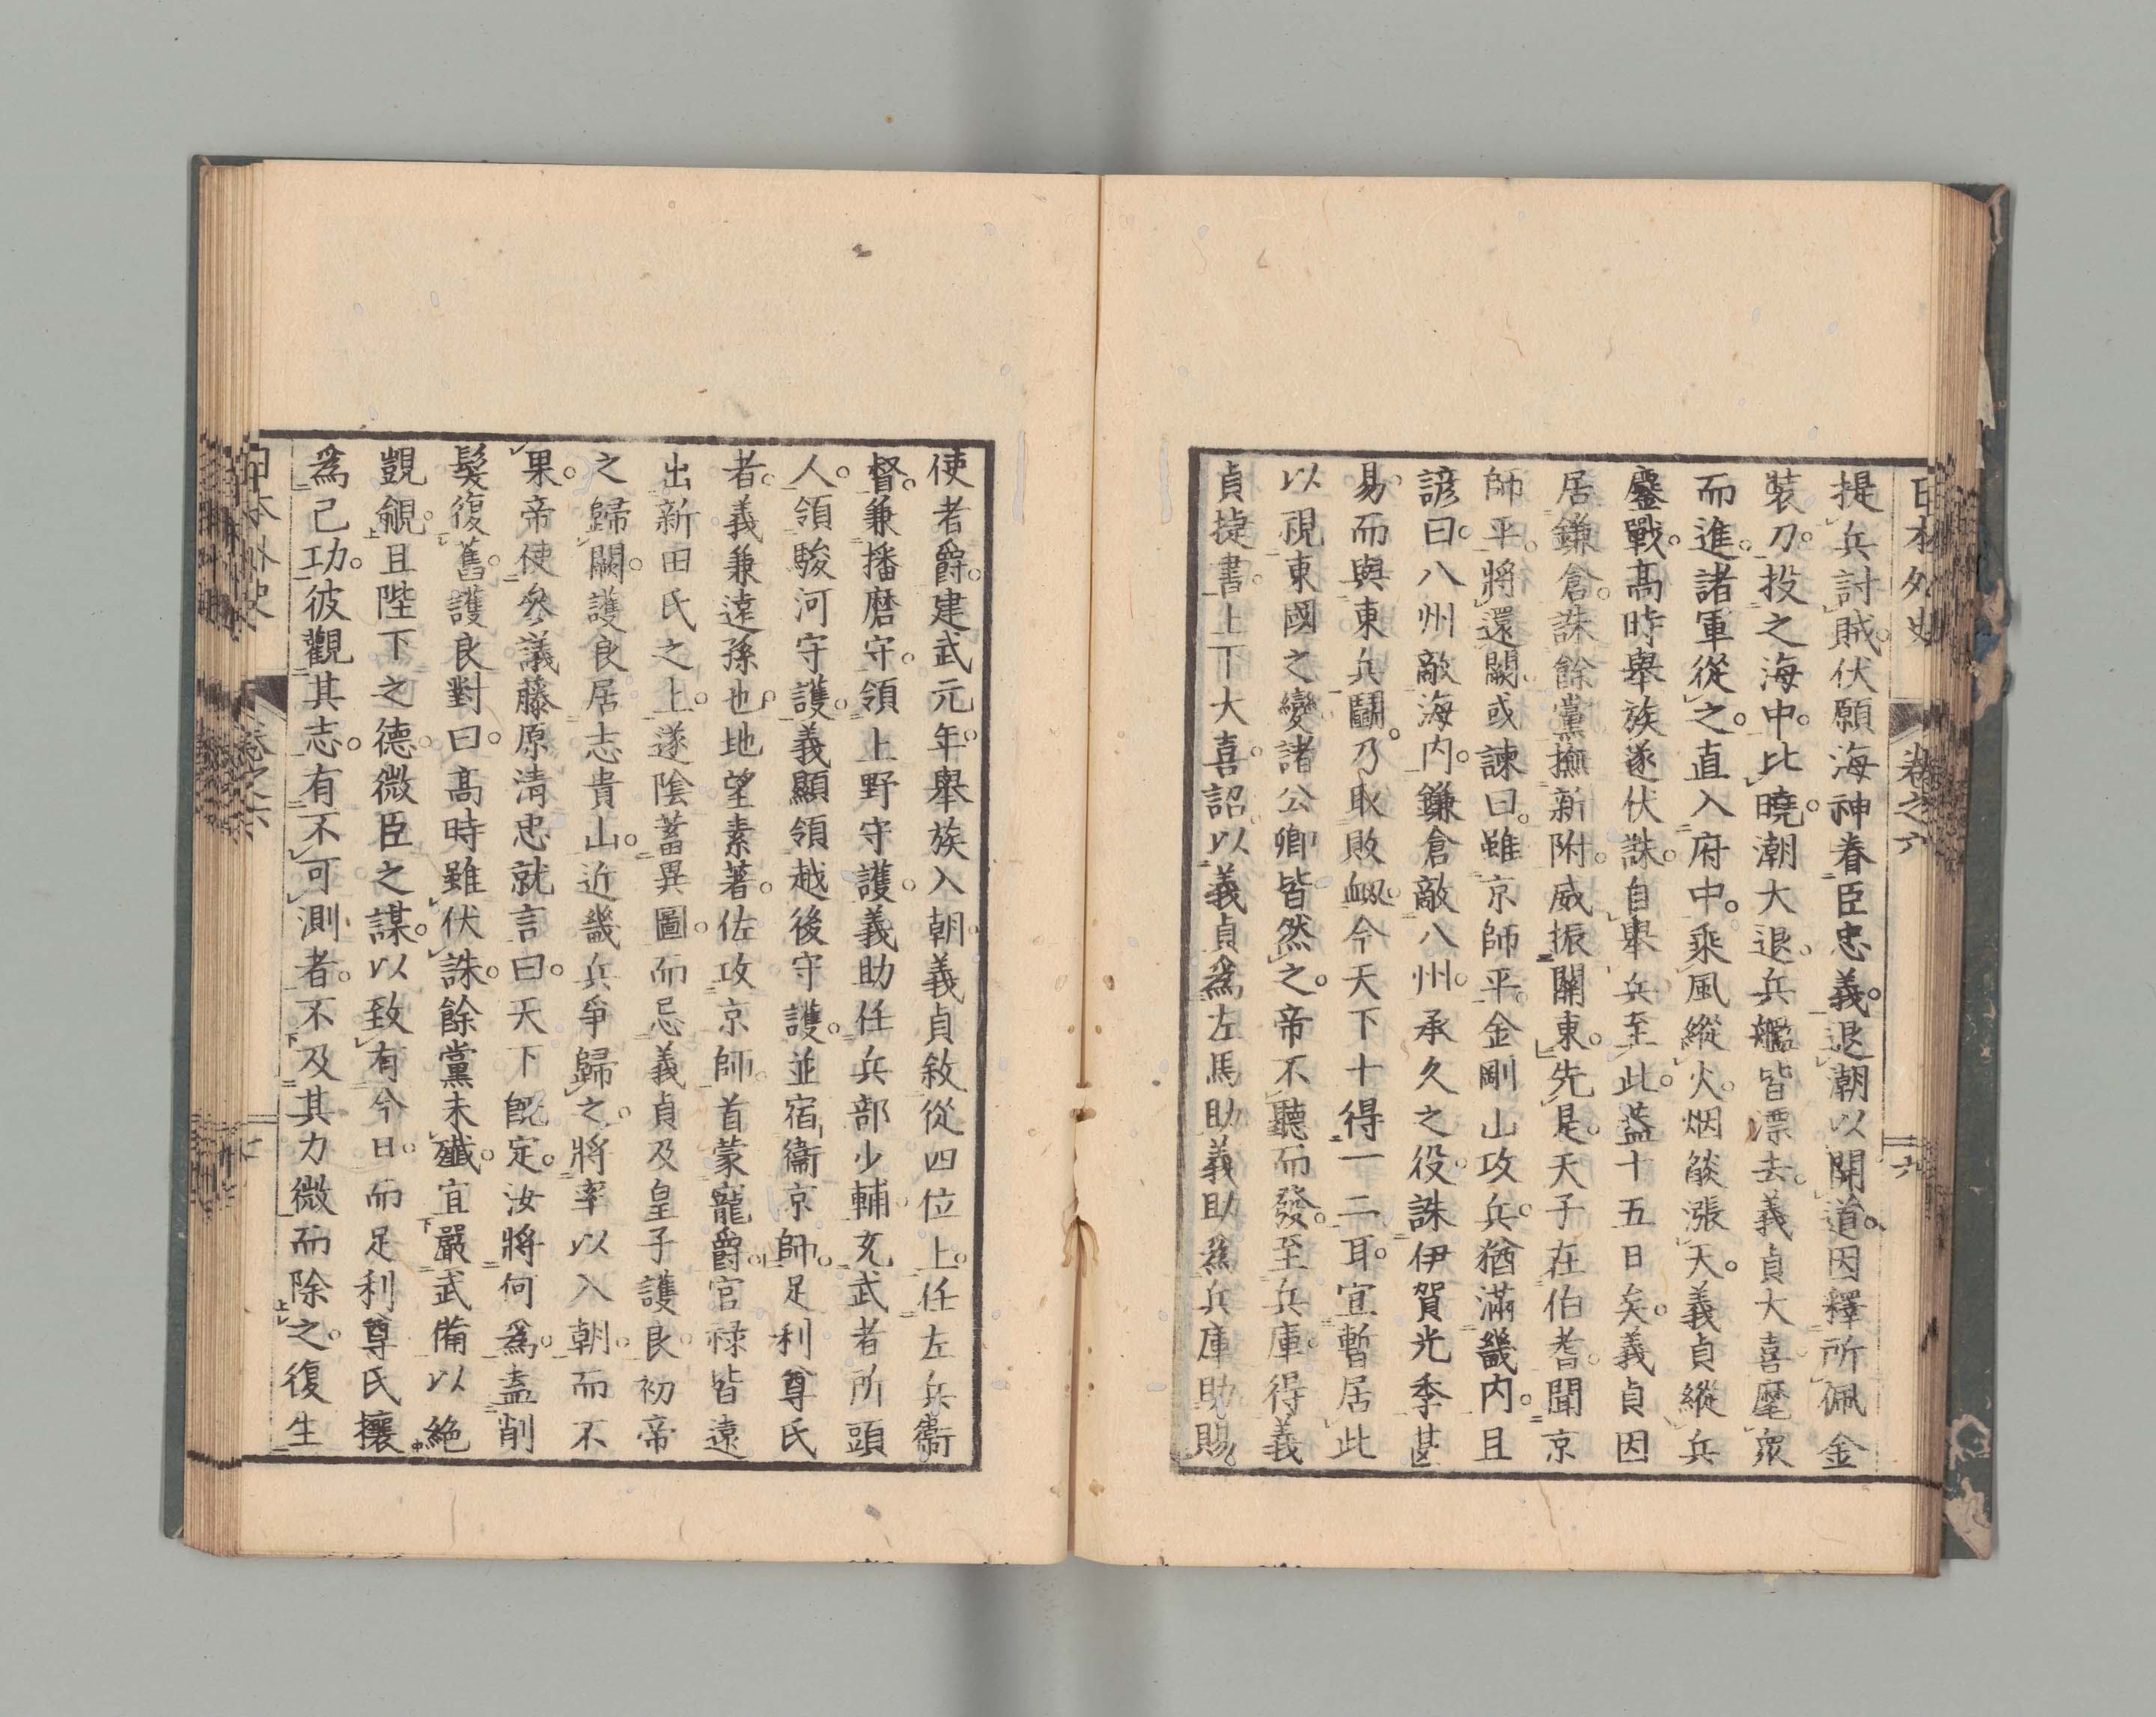 日本外史 卷之六 六
提兵討賊。伏願海神眷臣忠義。退潮以開道。因釋所佩金
裝刀。投之海中。比曉。潮大退。兵艦皆漂去。義貞大喜。麾衆
而進。諸軍從之。直入府中。乘風縱火。烟燄漲天。義貞縱兵
鏖戰。高時舉族遂伏誅。自舉兵至此。蓋十五日矣。義貞因
居鎌倉。誅餘黨撫新附。威振關東。先是。天子在伯耆。聞京
師平。將還闕。或諫曰。雖京師平。金剛山攻兵。猶滿畿内。且
諺曰。八州敵海内。鎌倉敵八州。承久之役。誅伊賀光季甚
易。而與東兵鬪。乃取敗衂。今天下十得一二耳。宜暫居此
以視東國之變。諸公卿皆然之。帝不聽而發。至兵庫。得義
貞捷書。上下大喜。詔以義貞爲左馬助義助爲兵庫助賜。
使者爵。建武元年。舉族入朝。義貞敘從四位上。任左兵衞
督。兼播磨守。領上野守護。義助任兵部少輔。充武者所頭
人。領駿河守護。義顯領越後守護。並宿衞京師。足利尊氏
者。義兼遠孫也。地望素著。佐攻京師。首蒙寵爵。官祿皆遠
出新田氏之上。遂陰蓄異圖。而忌義貞及皇子護良。初帝
之歸闕。護良居志貴山。近畿兵爭歸之。將率以入朝。而不
果。帝使參議藤原清忠就言曰。天下既定。汝將何爲。盍削
髮復舊。護良對曰。高時雖伏誅。餘黨未殲。宜嚴武備以絶
覬覦。且陛下之德。微臣之謀。以致有今日。而足利尊氏攘
爲己功。彼觀其志。有不可測者。不及其力微而除之。復生
日本外史 卷之六